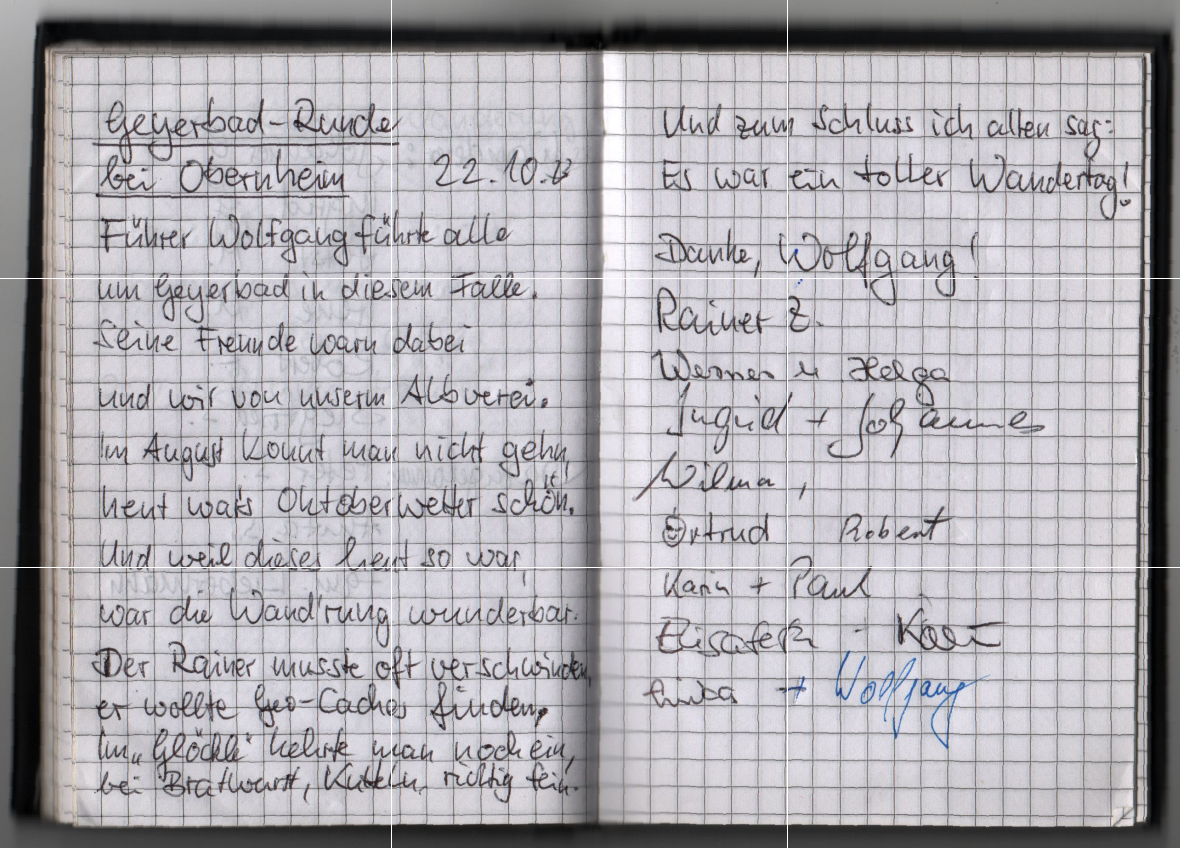 Geyerbad-Runde
bei Obernheim 22.10.
Führer Wolfgang führte alle
um Geyerbad in diesem Falle.
Seine Freunde warn dabei
und wir von unserm Albverei.
Im August konnt man nicht gehn,
heut wars Oktoberwetter schön.
Und weil dieses heut so war,
war die Wand'rung wunderbar.
Der Rainer musste oft verschwinden,
er wollte Geo-Caches finden,
Im „Glöckle" kehrte man noch ein,
bei Bratwurst, Kutteln, richtig fein.
Und zum Schluss ich allen sag:
Es war ein toller Wandertag!
Danke, Wolfgang!
Rainer Z.
Werner u Helga
Ingrid + Johannes
Wilma,
Ortrud Robert
Karin + Paul
Elisabeth -
+ Wolfgang